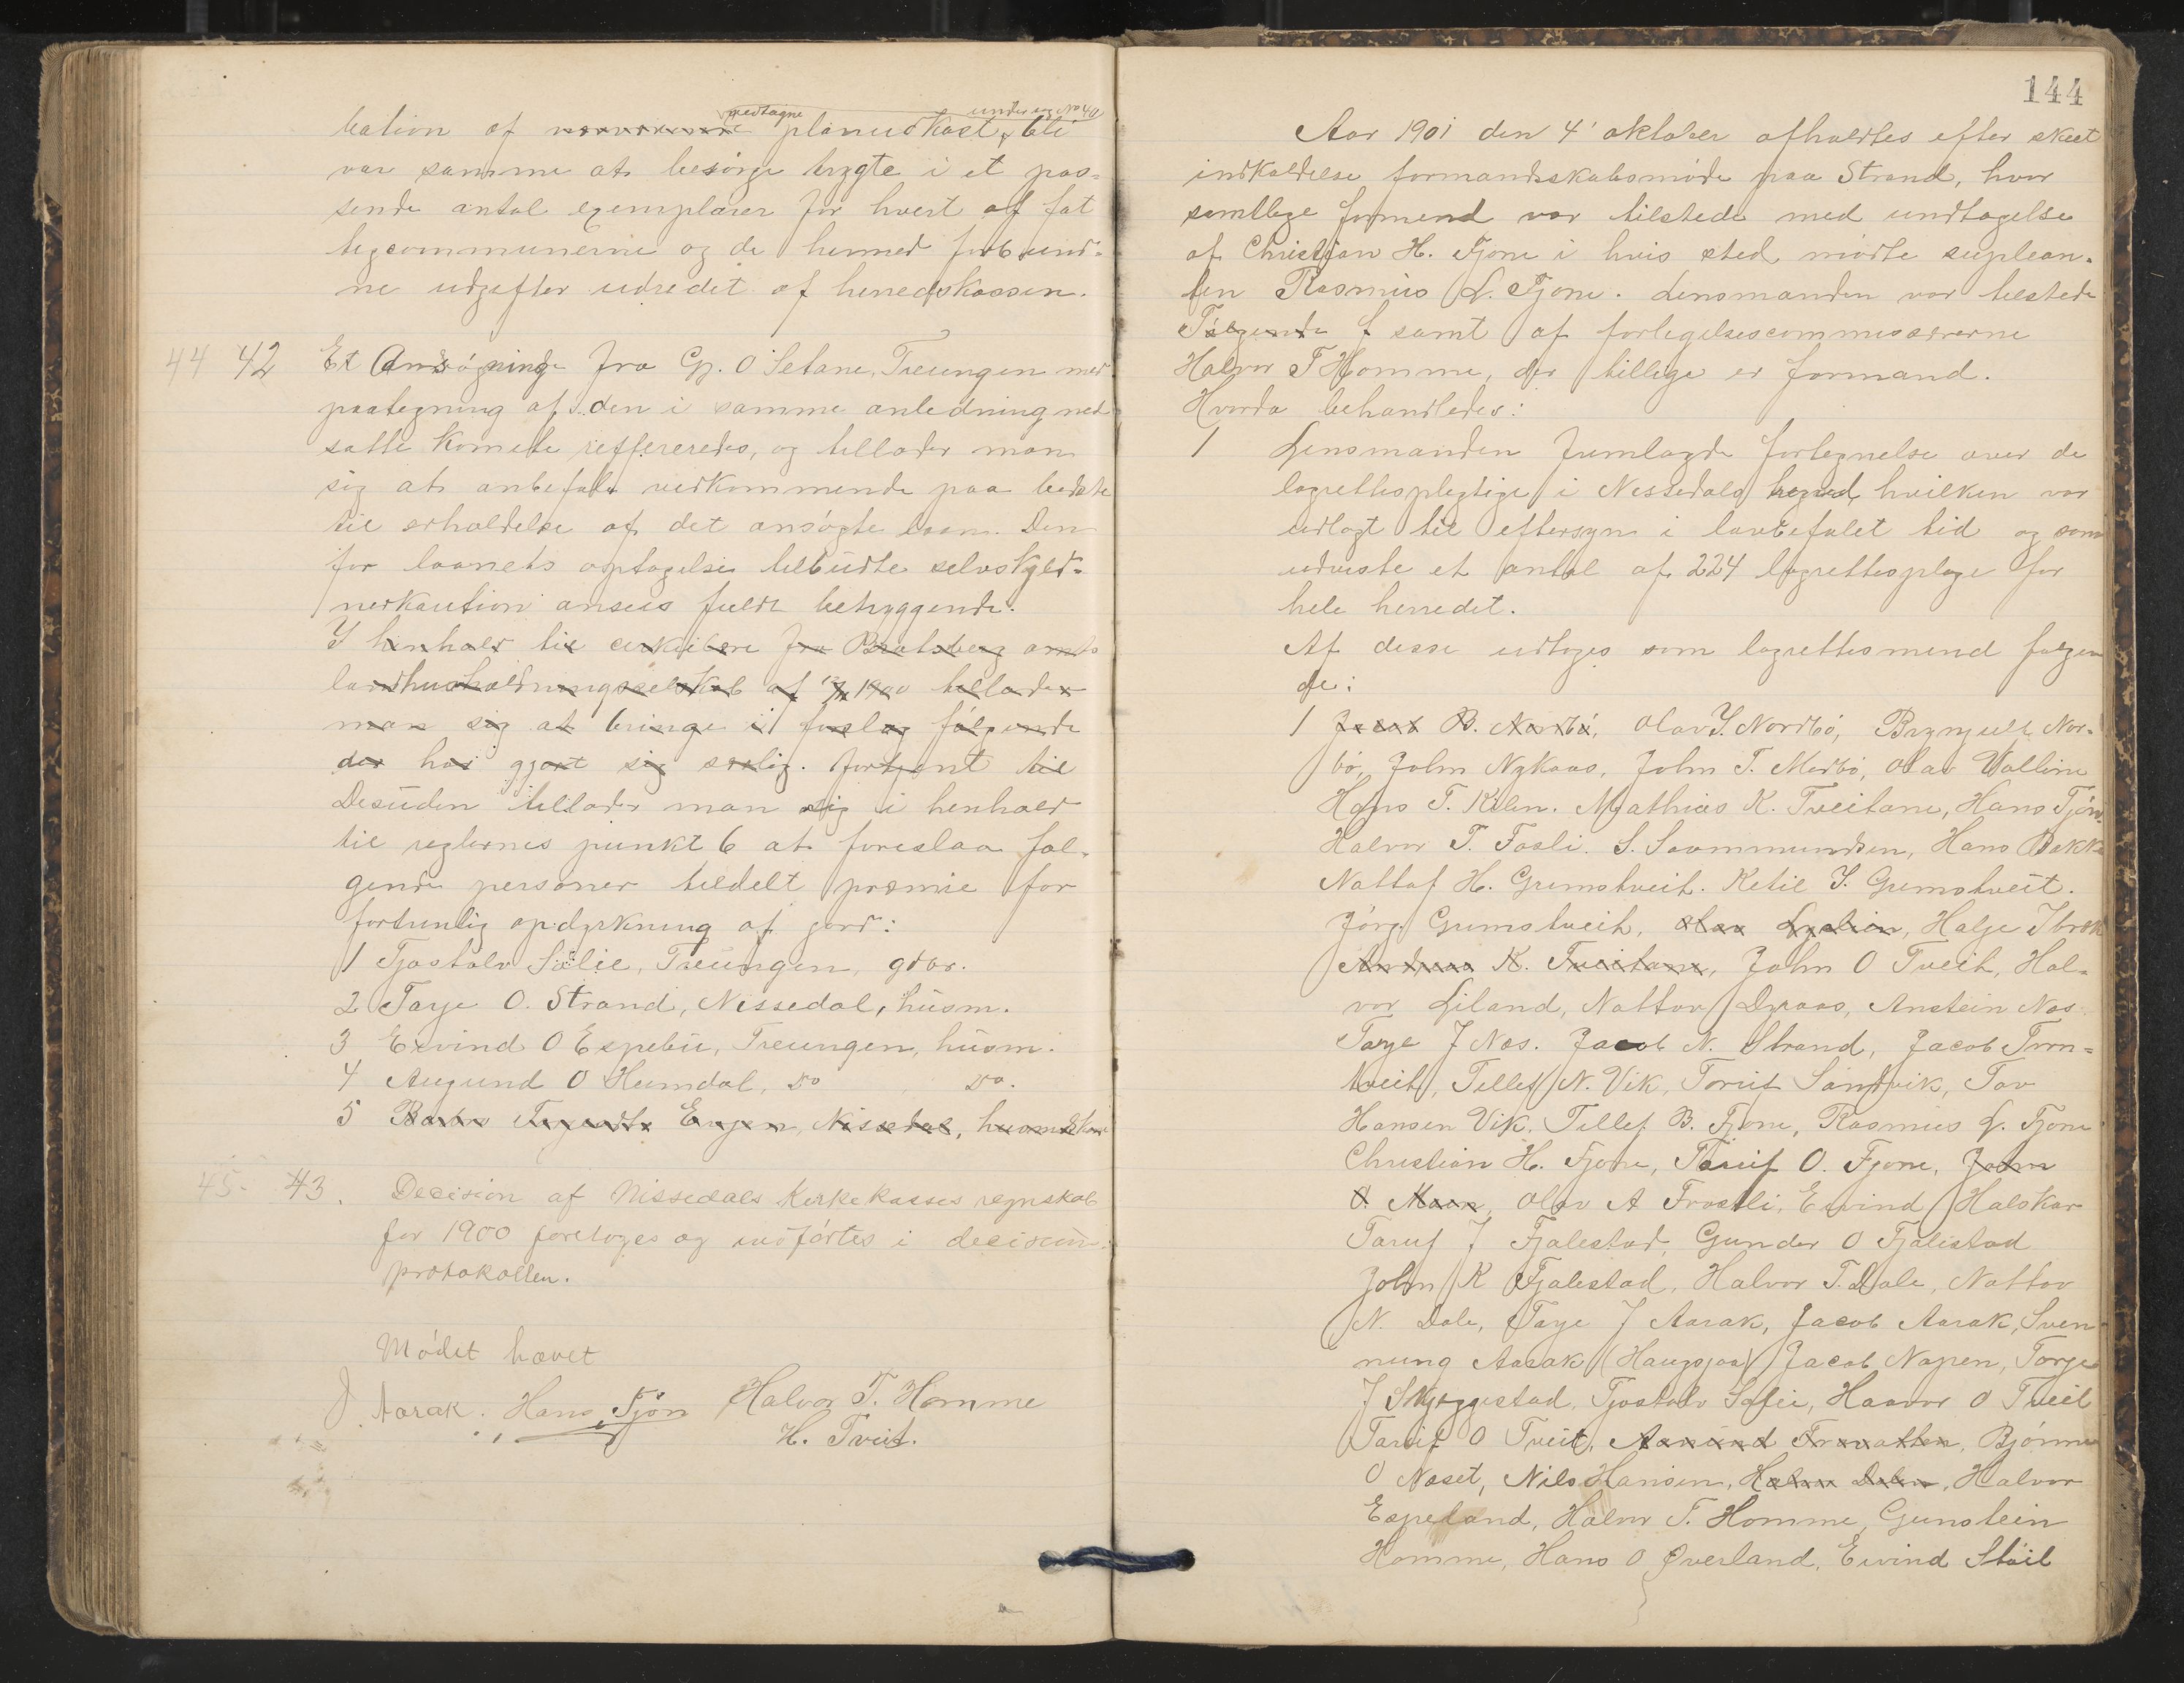 medtagne under sag No 40
bation af planudkast, bli
var samme at besørge trygte i et pas-
sende antal exemplarer for hvert af fat
tigcommunerne og de hermed forbund-
ne udgifter udredet af herredskassen.
44 42 Et Andsøgninge fra Gj. O Setane, Treungen med
paategning af den i samme anledning ned
satte komite reffereredes, og tillader man
sig at anbefale vedkommende paa bedste
til erholdelse af det ansøgte laan. Den
for laanets optagelse tilbudte selvskyld-
nerkaution ansees fuldt betryggende.
I henhold til cirkulære fra Bratsberg amts
landhusholdningsselskab af 1900 tillader
man sig at bringe i forslag følgende
der har gjort sig særlig fortjent til
Desuden tillader man sig i henhold
til reglernes punkt 6 at foreslaa føl-
gende personer tildelt præmie for
fortrinlig opdyrkning af jord:
1 Tjostolv Sølie, Treungen, gdbr.
2 Tarje O. Strand, Nissedal, husm.
3 Eivind O Espebu, Treungen, husm.
4 Augund O Heimdal, do do.
5 Engen, Nissedal,
45 43. Decision af Nissedals Kirkekasses regnskab
for 1900 foretoges og indførtes i decisions-
protokollen.
Mødet hævet
J. Aarak. Hans Tjøn Halvor T. Homme
H. Tveit.
144
Aar 1901 den 4' oktober afholdtes efter skeet
indkaldelse formandsskabsmøde paa Strand, hvor
samtlige formænd var tilstede med undtagelse
af Christian H. Fjone i hvis sted mødte suplean-
ten Rasmus L. Fjone. Lensmanden var tilstede
Følgende samt af forligelsescommissærerne
Halvor T Homme, der tillige er formand.
Hvorda behandledes:
1 Lensmanden fremlagde fortegnelse over de
lagrettespligtige i Nissedals hered, hvilken var
udlagt til eftersyn i lovbefalet tid og som
udviste et antal af 224 lagrettesplige for
hele herredet.
Af disse udtoges som lagrettesmend følgen
de:
1 Jacob B. Nordbø, Olav Y. Nordbø, Brynjulf Nor-
bø, John Nykaas, John T. Mørbø, Olav Valline
Hans T. Kilen. Mathias K. Tveitane, Hans Tjøn.
Halvor T. Fosli. S. Saammundsen, Hans Bakke
Nattof H. Grimstveit. Ketil Y. Grimstveit.
Jørg. Grimstveit, Olav, Halge
Andreas K. Tveitane, John O Tveit, Hal-
vor Liland, Nattov Dyraas, Anstein Næs
Tarje J Næs. Jacob N. Strand, Jacob Tron-
tveit, Tellef N. Vik, Toruf Sandvik, Tov
Hansen Vik. Tellef B. Fjone, Rasmus L. Fjone
Christian H. Fjone, Taruf O. Fjone, John
O. Moen, Olav A Frostli, Eivind Halskar
Taruf J Fjalestad, Gunder O Fjalestad
John K Fjalestad, Halvor T. Dale, Nattov
N. Dale, Tarje J Aarak, Jacob Aarak, Sven
nung Aarak (Haugsjaa) Jacob Napen, Torje
J Skjeggestad, Tjostolv Sølie, Haavor O Tveit
Taruf O Tveit, Bjørn
O Næset, Nils Hansen, Halvor
Espeland, Halvor T. Homme, Gunstein
Homme, Hans O Øverland, Eivind Støil